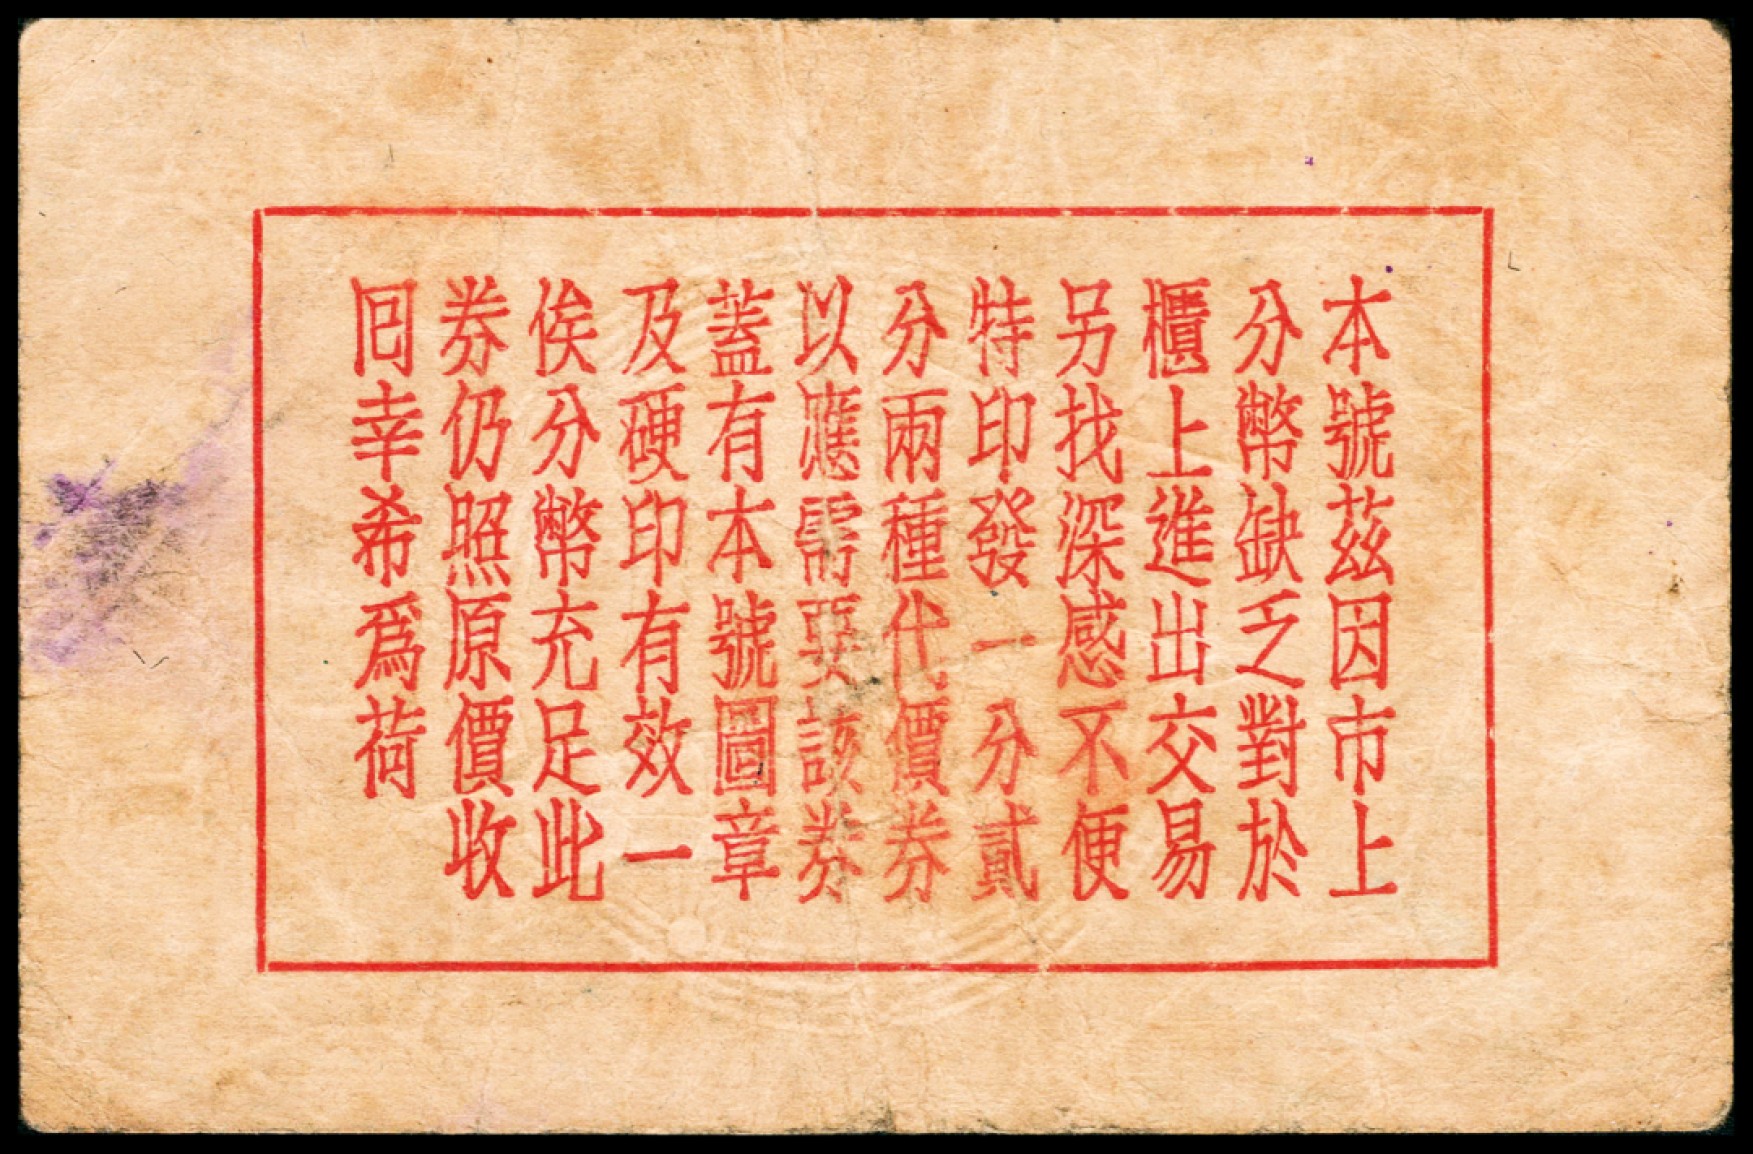 本號茲因市上
分幣缺乏對於
櫃上進出交易
另找深感不便
特印發一分貳
分兩種代價券
以應需要該券
蓋有本號圖章
及硬印有效一
俟分幣充足此
券仍照原價收
囘幸希爲荷